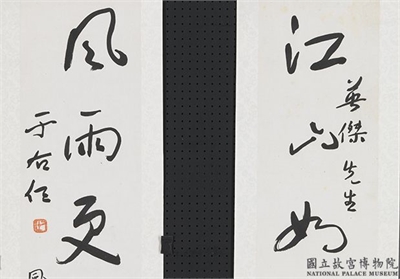 江山如
英傑先生
風雨更
于右任
國立故宮博物院
NATIONAL PALACE MUSEUM